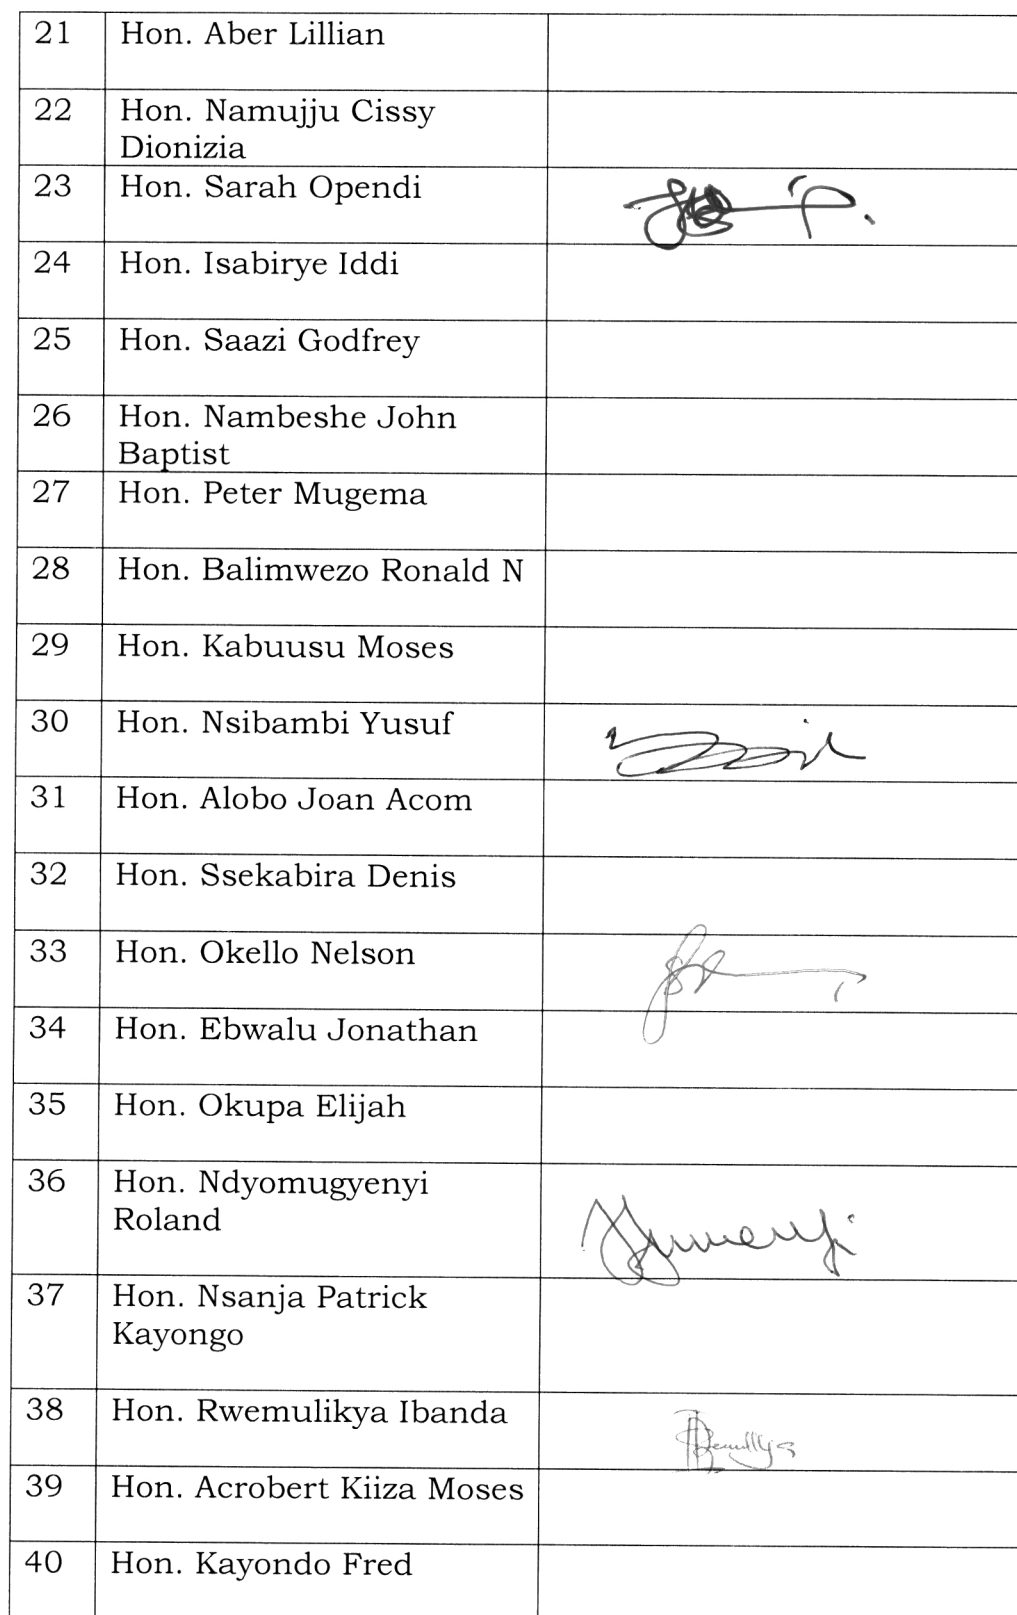 21 Hon. Aber Lillian
22 Hon. Namujju Cissy
Dionizia
23 Hon. Sarah Opendi
24 Hon. Isabirye Iddi
25 Hon. Saazi Godfrey
26 Hon. Nambeshe John
Baptist
27 Hon. Peter Mugema
28 Hon. Balimwezo Ronald N
29 Hon. Kabuusu Moses
30 Hon. Nsibambi Yusuf
31 Hon. Alobo Joan Acom
32 Hon. Ssekabira Denis
33 Hon. Okello Nelson
34 Hon. Ebwalu Jonathan
35 Hon. Okupa Elijah
36 Hon. Ndyomugyenyi
Roland
37 Hon. Nsanja Patrick
Kayongo
38 Hon. Rwemulikya Ibanda
39 Hon. Acrobert Kiiza Moses
40 Hon. Kayondo Fred